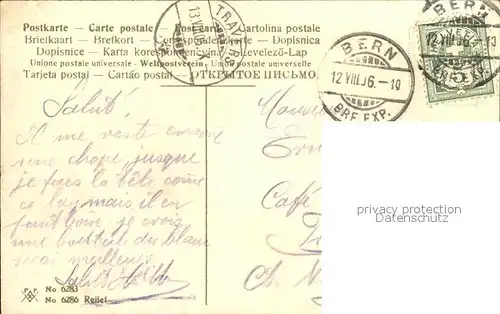 Postkarte — Carte postale — Post card — Cartolina postale
Briefkaart — Brefkort — Correspondenzkarte — Dopisnica
Dopisnice — Karta korespondencyjna — Levelező-Lap
Union postale universelle - Weltpostverein - Union postale universelle
Tarjeta postal — Cartão postal — ОТКРЫТОЕ ПИСЬМО.
TRAVERS
13 VIII 06
BERN
12.VIII.06.-10
BRF. EXP.
BERN
12 VIII 06
Salut!
Il me reste encore
une chope, jusque
je fais la tête comme
ça, mais il en
faut boire. je crois
une bouteille du blanc
serai meilleur.
Salut
Monsieur
Café
Ct. N
privacy protection
Datenschutz
P. F.
No 6283
No 6286 Relief